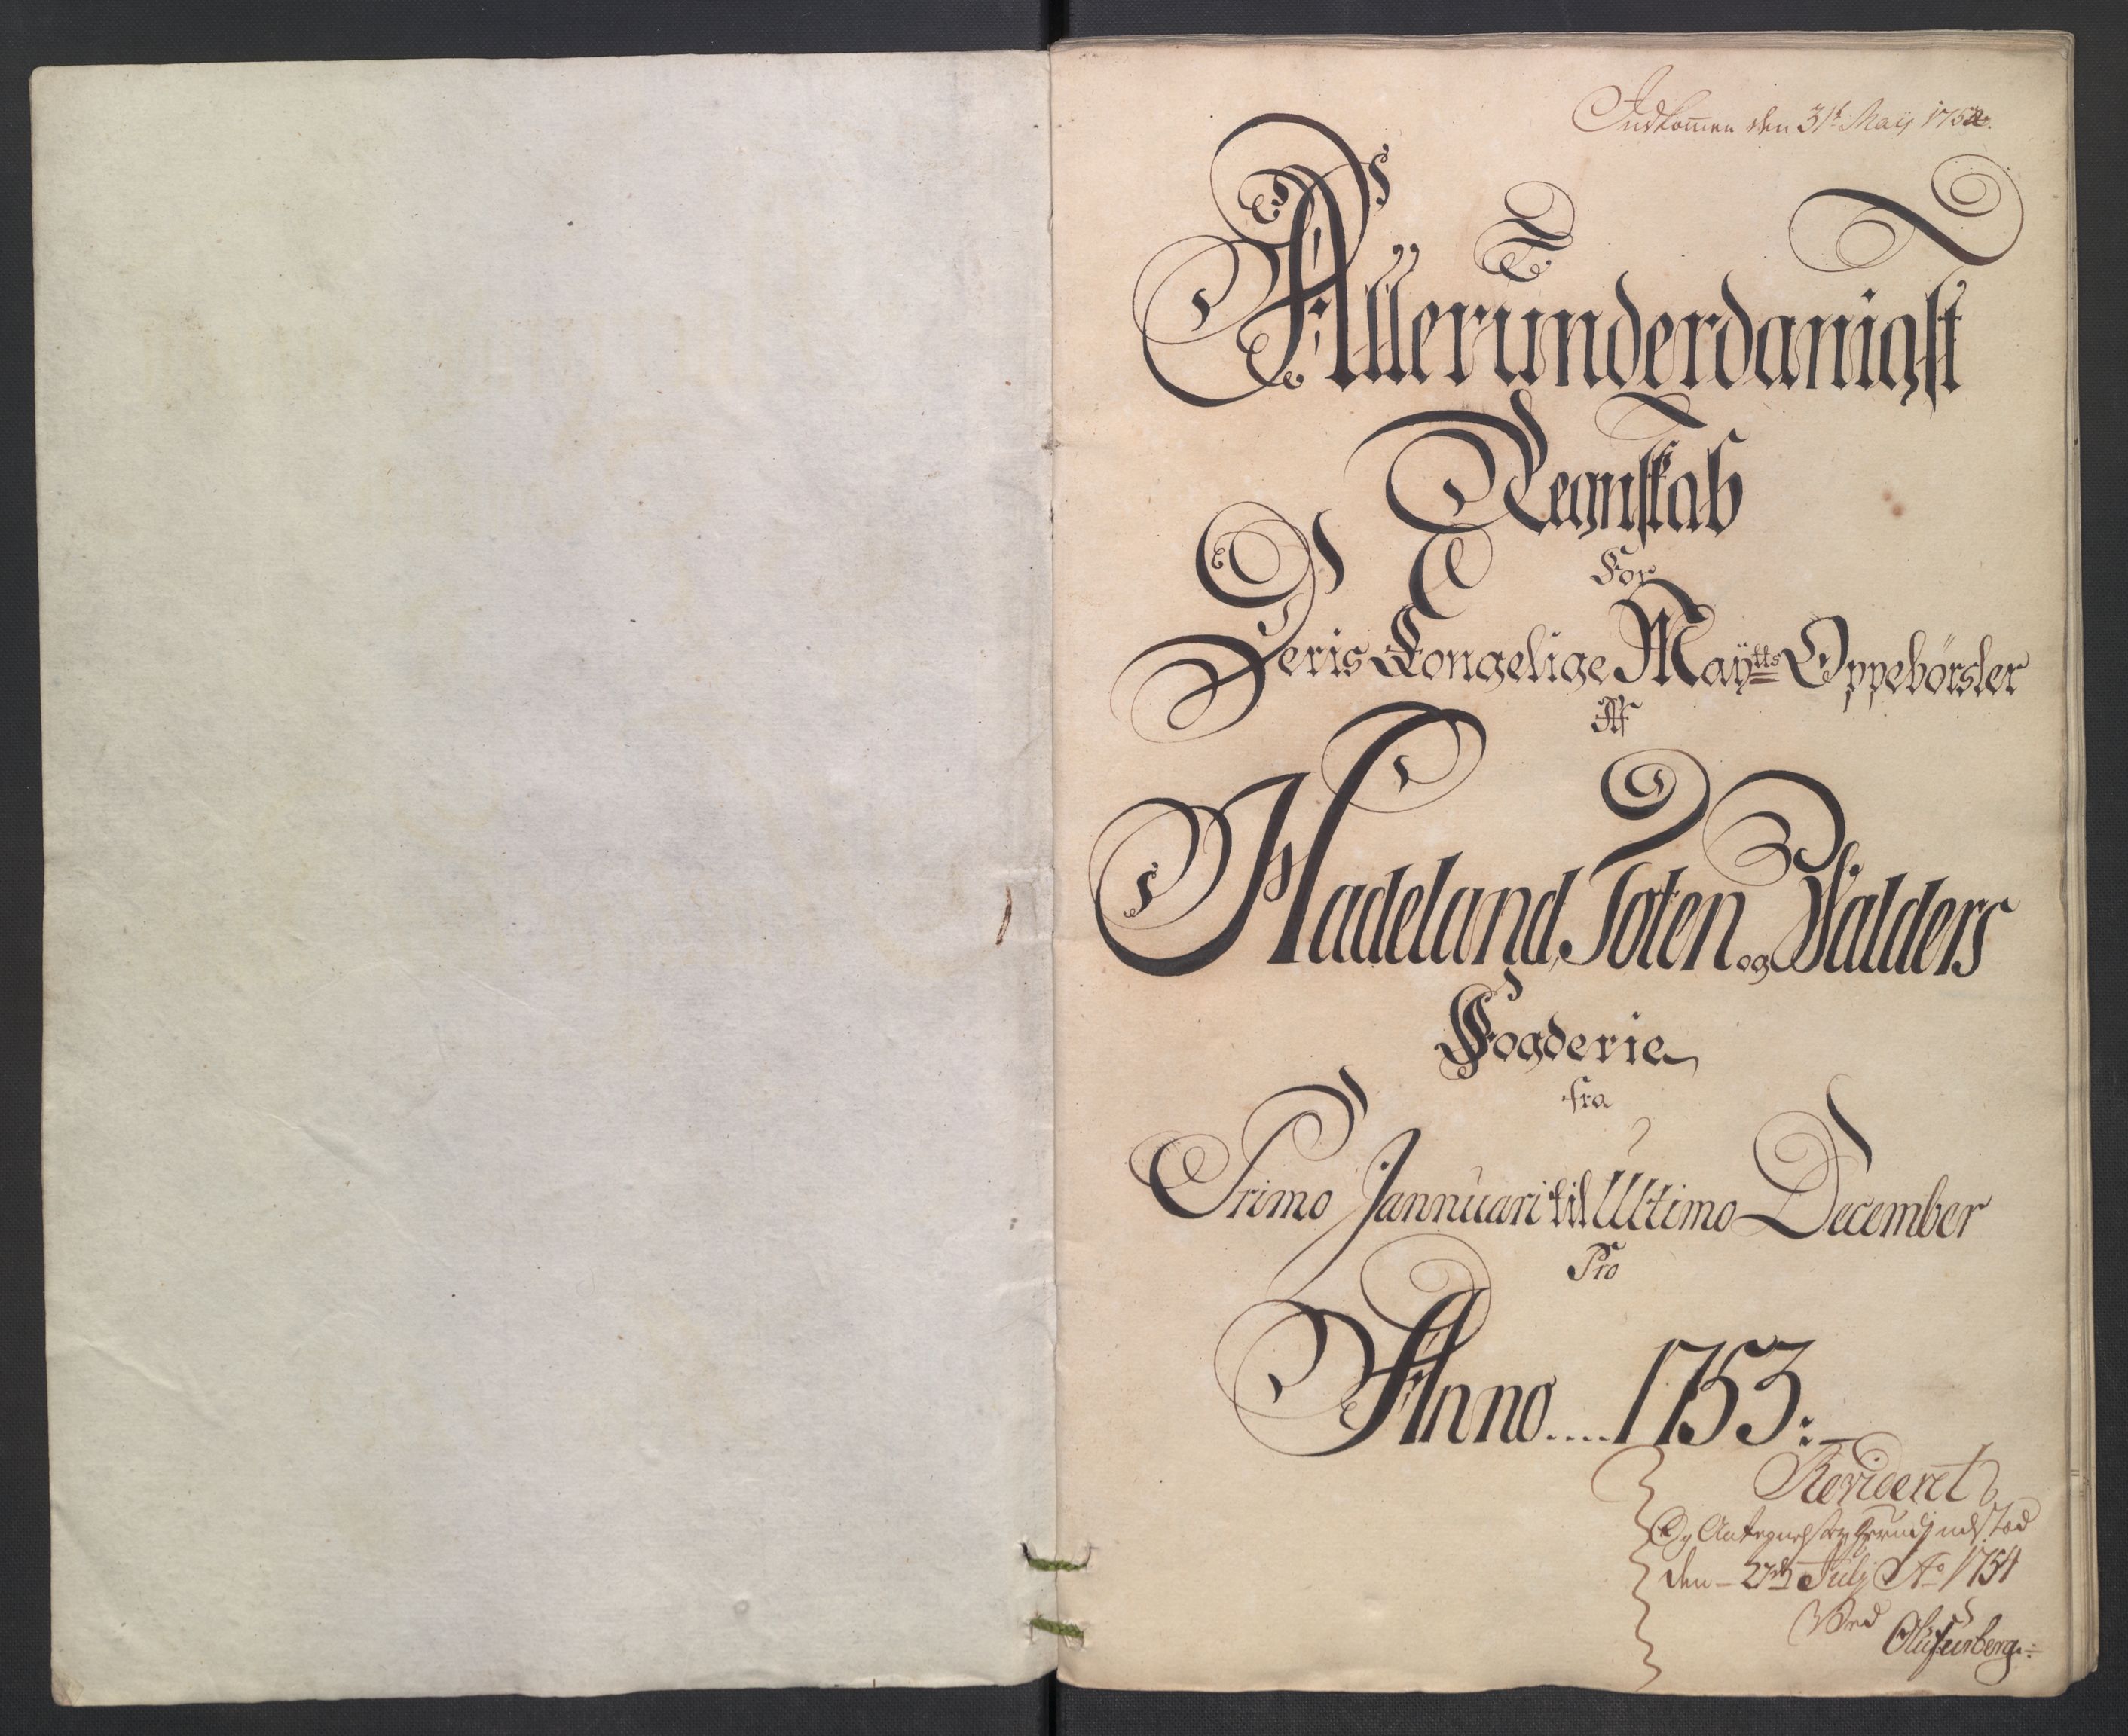 Indkommen den 31t Maij 175
Allerunderdanigst
Regnskab
For
Deris Kongelige Maÿtts Oppebørsler
Af
Hadeland Toten og Walders
Fogderie
fra
Primo Jannuari til Ultimo December
Pro
Anno....1753:
Revideret
Og Antegnelser
den 27de Julij Ao 1754
Ved